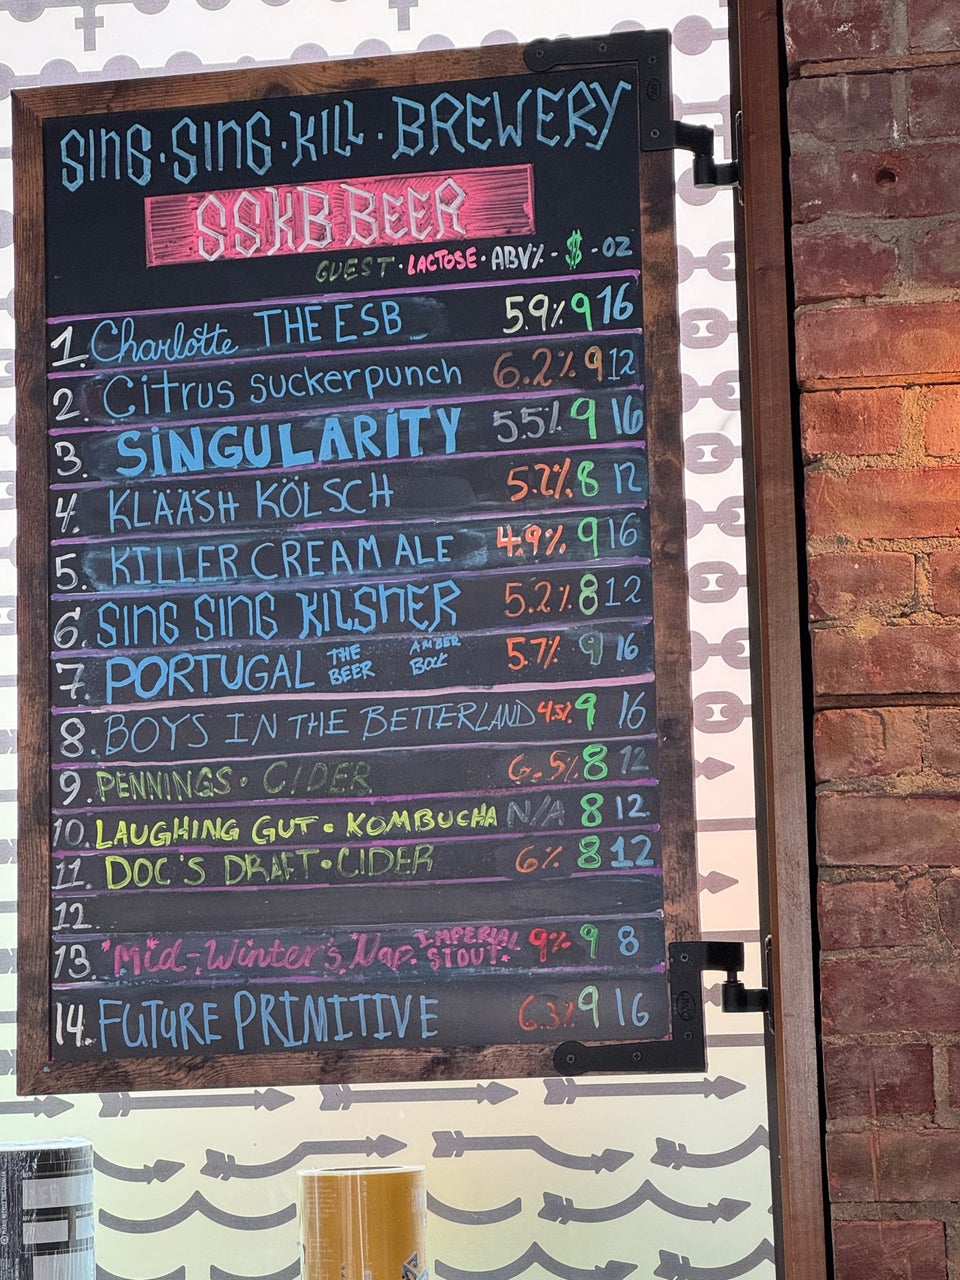 SING · SING · KILL · BREWERY
SSKB BEER
GUEST · LACTOSE · ABV% - $ - OZ
1. Charlotte THE ESB 5.9% 9 16
2. Citrus suckerpunch 6.2% 9 12
3. SINGULARITY 5.5% 9 16
4. KLÄÄSH KÖLSCH 5.2% 8 12
5. KILLER CREAM ALE 4.9% 9 16
6. SING SING KILSNER 5.2% 8 12
7. PORTUGAL THE BEER AMBER BOCK 5.7% 9 16
8. BOYS IN THE BETTERLAND 4.5% 9 16
9. PENNINGS · CIDER 6.5% 8 12
10. LAUGHING GUT · KOMBUCHA N/A 8 12
11. DOC'S DRAFT · CIDER 6% 8 12
12.
13. "Mid-Winter's Nap" IMPERIAL STOUT 9% 9 8
14. FUTURE PRIMITIVE 6.3% 9 16